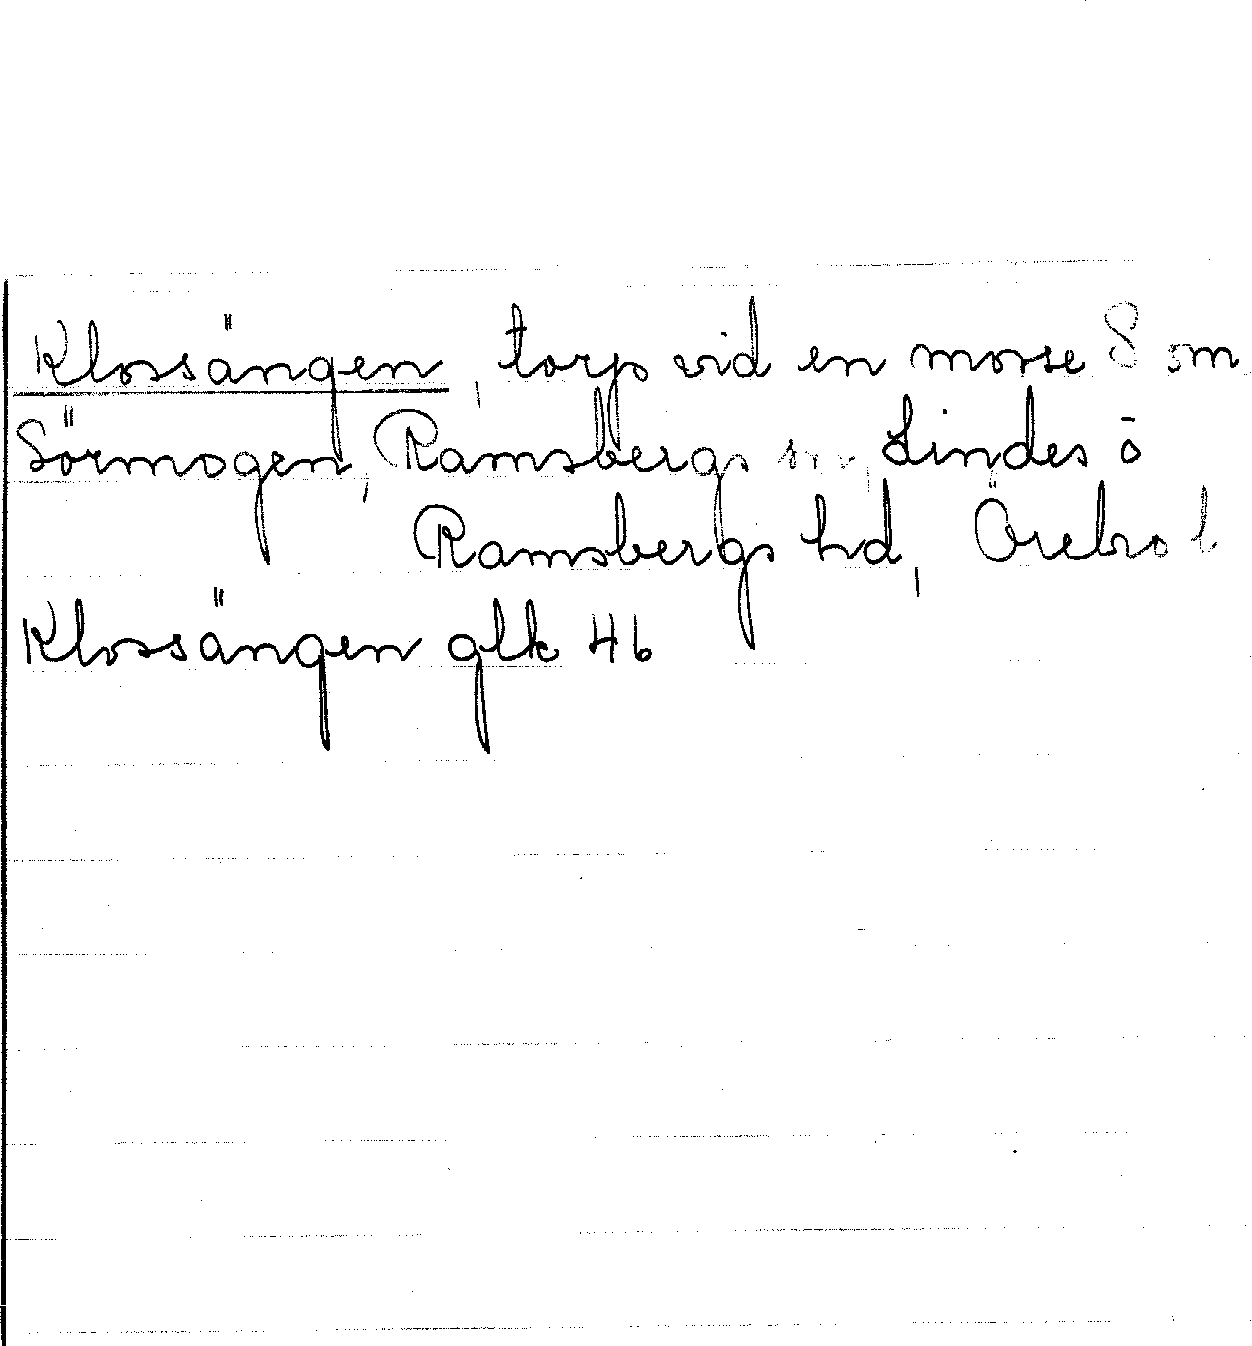 Klossängen, torp vid en mosse S om
Sörmogen, Ramsbergs sn, Lindes o
Ramsbergs hd, Örebro l
Klossängen glk 46